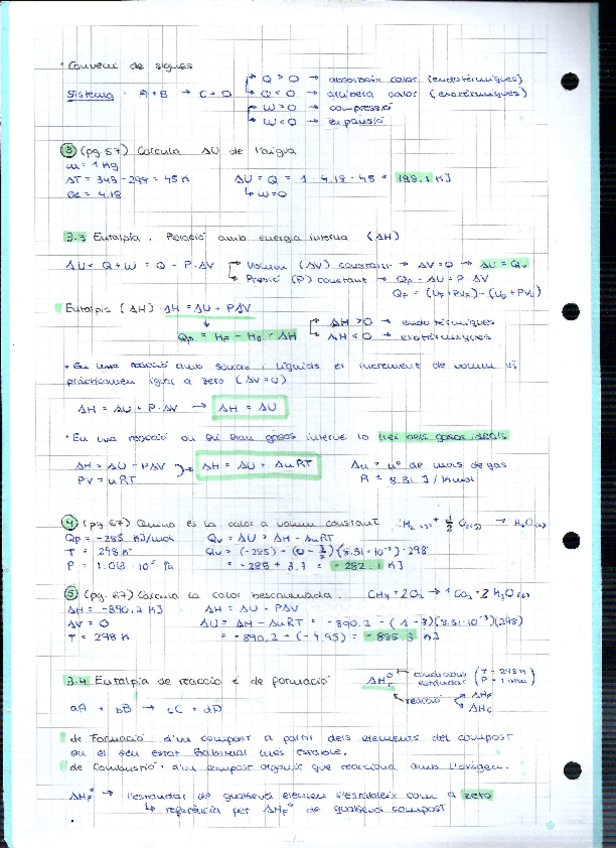 · Conveni de signes
Sistema · A + B → C + D
Q > 0 → absorbeix calor (endotèrmiques)
Q < 0 → allibera calor (exotèrmiques)
W > 0 → compressió
W < 0 → expansió
③ (pg 67) Calcula ΔU de l'aigua
m = 1 Kg
ΔT = 343 - 298 = 45 K    ΔU = Q = 1 · 4.18 · 45 = 188.1 KJ
Ce = 4.18    ↳ W=0
3.3 Entalpia. Relació amb energia interna (ΔH)
ΔU = Q + W = Q - P·ΔV
Volum (ΔV) constant → ΔV=0 → ΔU = Qv
Pressió (P) constant → Qp = ΔU + P·ΔV
Qp = (UF + PVF) - (U0 + PV0)
Entalpia (ΔH) · ΔH = ΔU + PΔV
Qp = HF - H0 = ΔH
ΔH > 0 → endotèrmiques
ΔH < 0 → exotèrmiques
· En una reacció amb sòlids i líquids el increment de volum és
pràcticament igual a zero (ΔV=0)
ΔH = ΔU + P·ΔV → ΔH = ΔU
· En una reacció on hi han gasos intervé la llei dels gasos ideals
ΔH = ΔU + PΔV    ΔH = ΔU + ΔnRT    Δn = nº de mols de gas
PV = nRT    R = 8.31 J / K mol
④ (pg 67) Quina és la calor a volum constant    H2 (g) + 1/2 O2(g) → H2O(l)
Qp = -285 KJ/mol    Qv = ΔU = ΔH - ΔnRT
T = 298 K    Qv = (-285) - (0 - 3/2)(8.31·10⁻³)·298
P = 1.013 · 10⁵ Pa    = -285 + 3.7 = -282.1 KJ
⑤ (pg. 67) Calcula la calor bescanviada.    CH4 + 2O2 → 1 CO2 + 2 H2O(l)
ΔH = -890,2 KJ    ΔH = ΔU + PΔV
ΔV = 0    ΔU = ΔH - ΔnRT = -890,2 - (1-3)(8.31·10⁻³)(298)
T = 298 K    = -890,2 - (-4.95) = -885.3 KJ
3.4 Entalpia de reacció i de formació
condicions estàndar (T = 298 K
P = 1 atm)
reacció
ΔHF
ΔHC
aA + bB → cC + dD
de Formació: d'un compost a partir dels elements del compost
en el seu estat habitual més estable.
de Combustió: d'un compost orgànic que reacciona amb l'oxigen.
ΔHF° → l'estàndar de qualsevol element s'estableix com a zero
↳ referència per ΔHF° de qualsevol compost